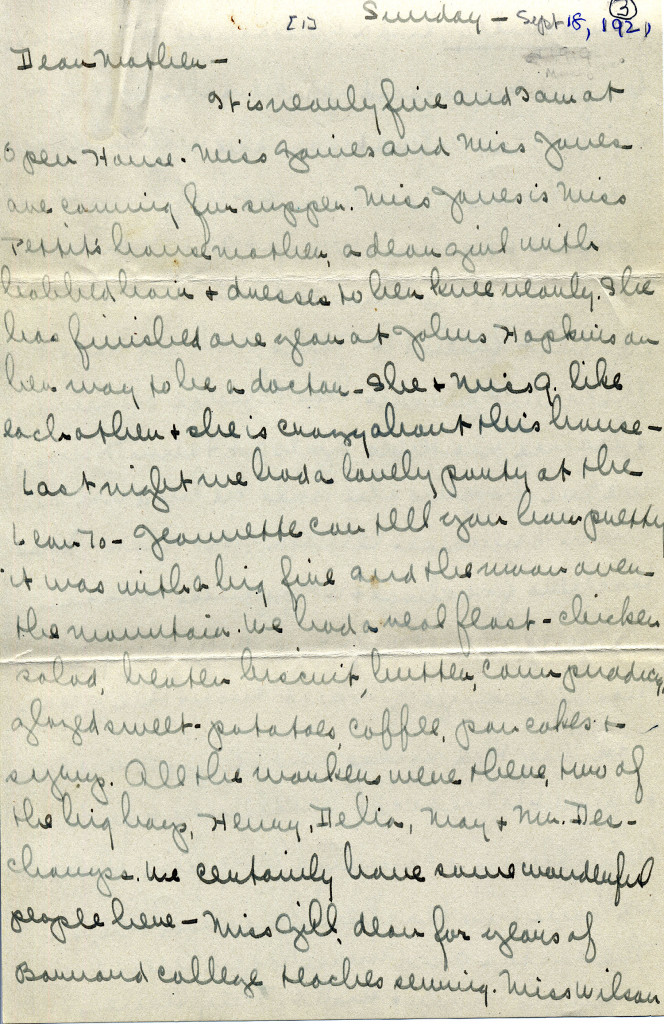 ③
[1] Sunday - Sept 18, 1921
Dear Mother -
It is nearly five and I am at
Open House. Miss Gaines and Miss Jones
are coming for supper. Miss Jones is Miss
Pettit's house mother, a dear girl with
bobbed hair + dresses to her knee nearly. She
has finished one year at Johns Hopkins on
her way to be a doctor - She + Miss G. like
each other + she is crazy about this house -
Last night we had a lovely party at the
Lean To - Jeannette can tell you how pretty
it was with a big fire and the moon over
the mountain. We had a real feast - chicken
salad, beaten biscuit, butter, corn pudding,
glazed sweet-potatoes, coffee, pancakes +
syrup. All the workers were there, two of
the big boys, Henry, Delia, May + Mr. Des-
champs. We certainly have some wonderful
people here - Miss Gill, dean for years of
Barnard College teaches sewing. Miss Wilson